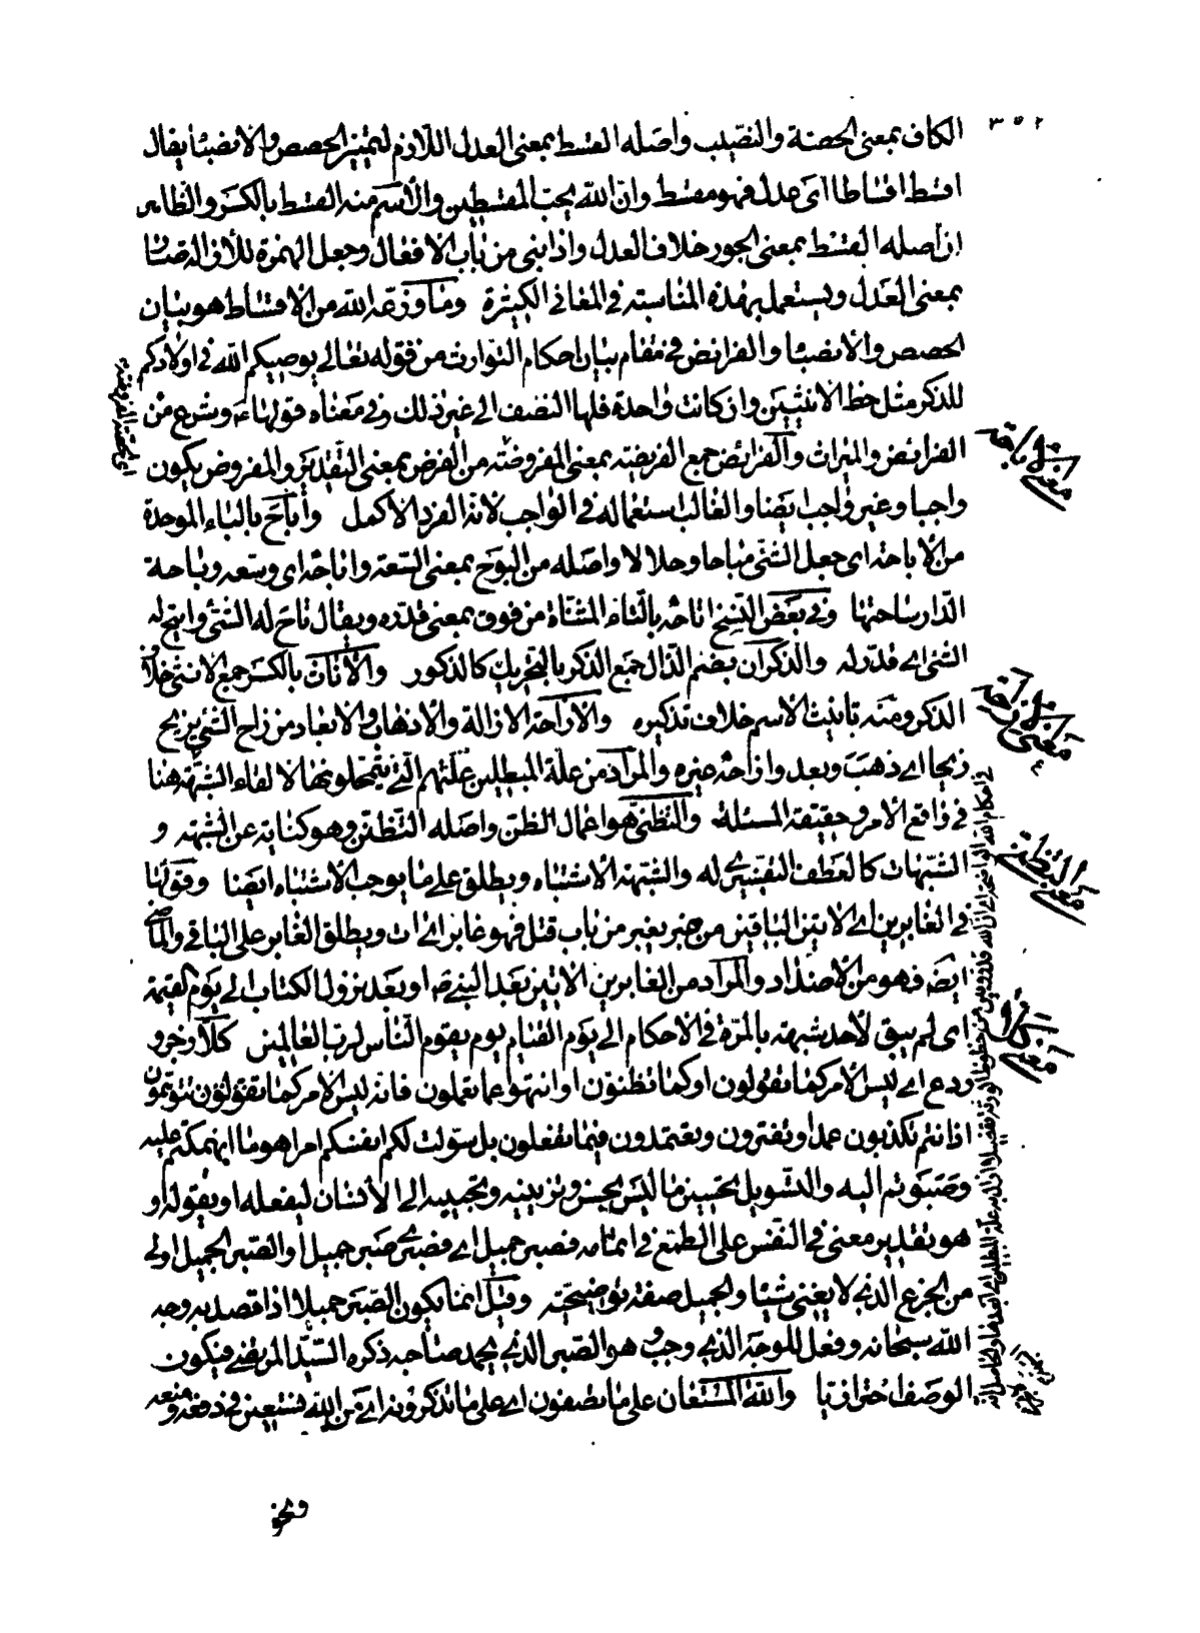 ٣٥٢
الكاف بمعنى الحصة والنصيب واصله القسط بمعنى العدل اللازم لتميز الحصص والانصباء يقال
اقسط اقساطا اى عدل فهو مقسط وان الله يحب المقسطين والاسم منه القسط بالكسر والظاهر
ان اصله القسط بمعنى الجور خلاف العدل واذا بنى من باب الافعال وجعل الهمزة للازالة صار
بمعنى العدل ويستعمل بهذه المناسبة فى المعانى الكثيرة وما وزعه الله من الاقساط هو بيان
الحصص والانصباء والفرائض فى مقام بيان احكام التوارث من قوله تعالى يوصيكم الله فى اولادكم
للذكر مثل حظ الانثيين وان كانت واحدة فلها النصف الى غير ذلك وفى معناه قولها ع وشرع من
الفرائض والميراث والفرائض جمع الفريضة بمعنى المفروضة من الفرض بمعنى التقدير والمفروض يكون
واجبا وغير واجب ايضا والغالب استعماله فى الواجب لانه الفرد الاكمل وأباح بالباء الموحدة
من الاباحة اى جعل الشئ مباحا وحلالا واصله من البوح بمعنى السعة واباحه اى وسعه وباحة
الدار ساحتها وفى بعض النسخ اتاحه بالتاء المثناة من فوق بمعنى قدره ويقال تاح له الشئ واتيح له
الشئ اى قدر له والذكران بضم الذال جمع الذكر بالتحريك كالذكور والاناث بالكسر جمع الانثى خلاف
الذكر ومنه تانيث الاسم خلاف تذكيره والازاحة الازالة والاذهاب والابعاد من زاح الشئ يزيح
زيحا اى ذهب وبعد وازاحه غيره والمراد من علة المبطلين علتهم التى يتمحلونها لالقاء الشبهة هنا
فى واقع الامر وحقيقة المسئلة والتظنى هو اعمال الظن واصله التظنن وهو كناية عن الشبهة و
الشبهات كالعطف التفسيرى له والشبهة الاشتباه ويطلق على ما يوجب الاشتباه ايضا وقولها
فى الغابرين اى الاتين الباقين من غبر يغبر من باب قتل فهو غابر اى ات ويطلق الغابر على الباقى والماضى
ايضا فهو من الاضداد والمراد من الغابرين الاتين بعد النبى ص او بعد نزول الكتاب الى يوم القيمة
اى لم يبق لاحد شبهة بالمرة فى الاحكام الى يوم القيام يوم يقوم الناس لرب العالمين كلا زجر و
ردع اى ليس الامر كما تقولون او كما تظنون او انتهوا عما تعملون فانه ليس الامر كما تقولون
اذ انتم تكذبون عمدا وتفترون وتعتمدون فيما تفعلون بل سولت لكم انفسكم امرا هو ما انهمكتم عليه
وصبوتم اليه والتسويل تحسين ما ليس بحسن وتزيينه وتحبيبه الى الانسان ليفعله او يقوله او
هو تقدير معنى فى النفس على الطمع فى اتمامه فصبر جميل اى فصبرى صبر جميل او الصبر الجميل اولى
من الجزع الذى لا يغنى شيئا والجميل صفة توضيحية وقيل انما يكون الصبر جميلا اذا قصد به وجه
الله سبحانه وفعل للوجه الذى وجب هو الصبر الذى يحمد صاحبه ذكره السيد المرتضى فيكون
الوصف احترازيا والله المستعان على ما تصفون اى على ما تذكرونه اى من الله نستعين فى دفعه ومنعه
ونحو
معنى
معنى التظنى
معنى